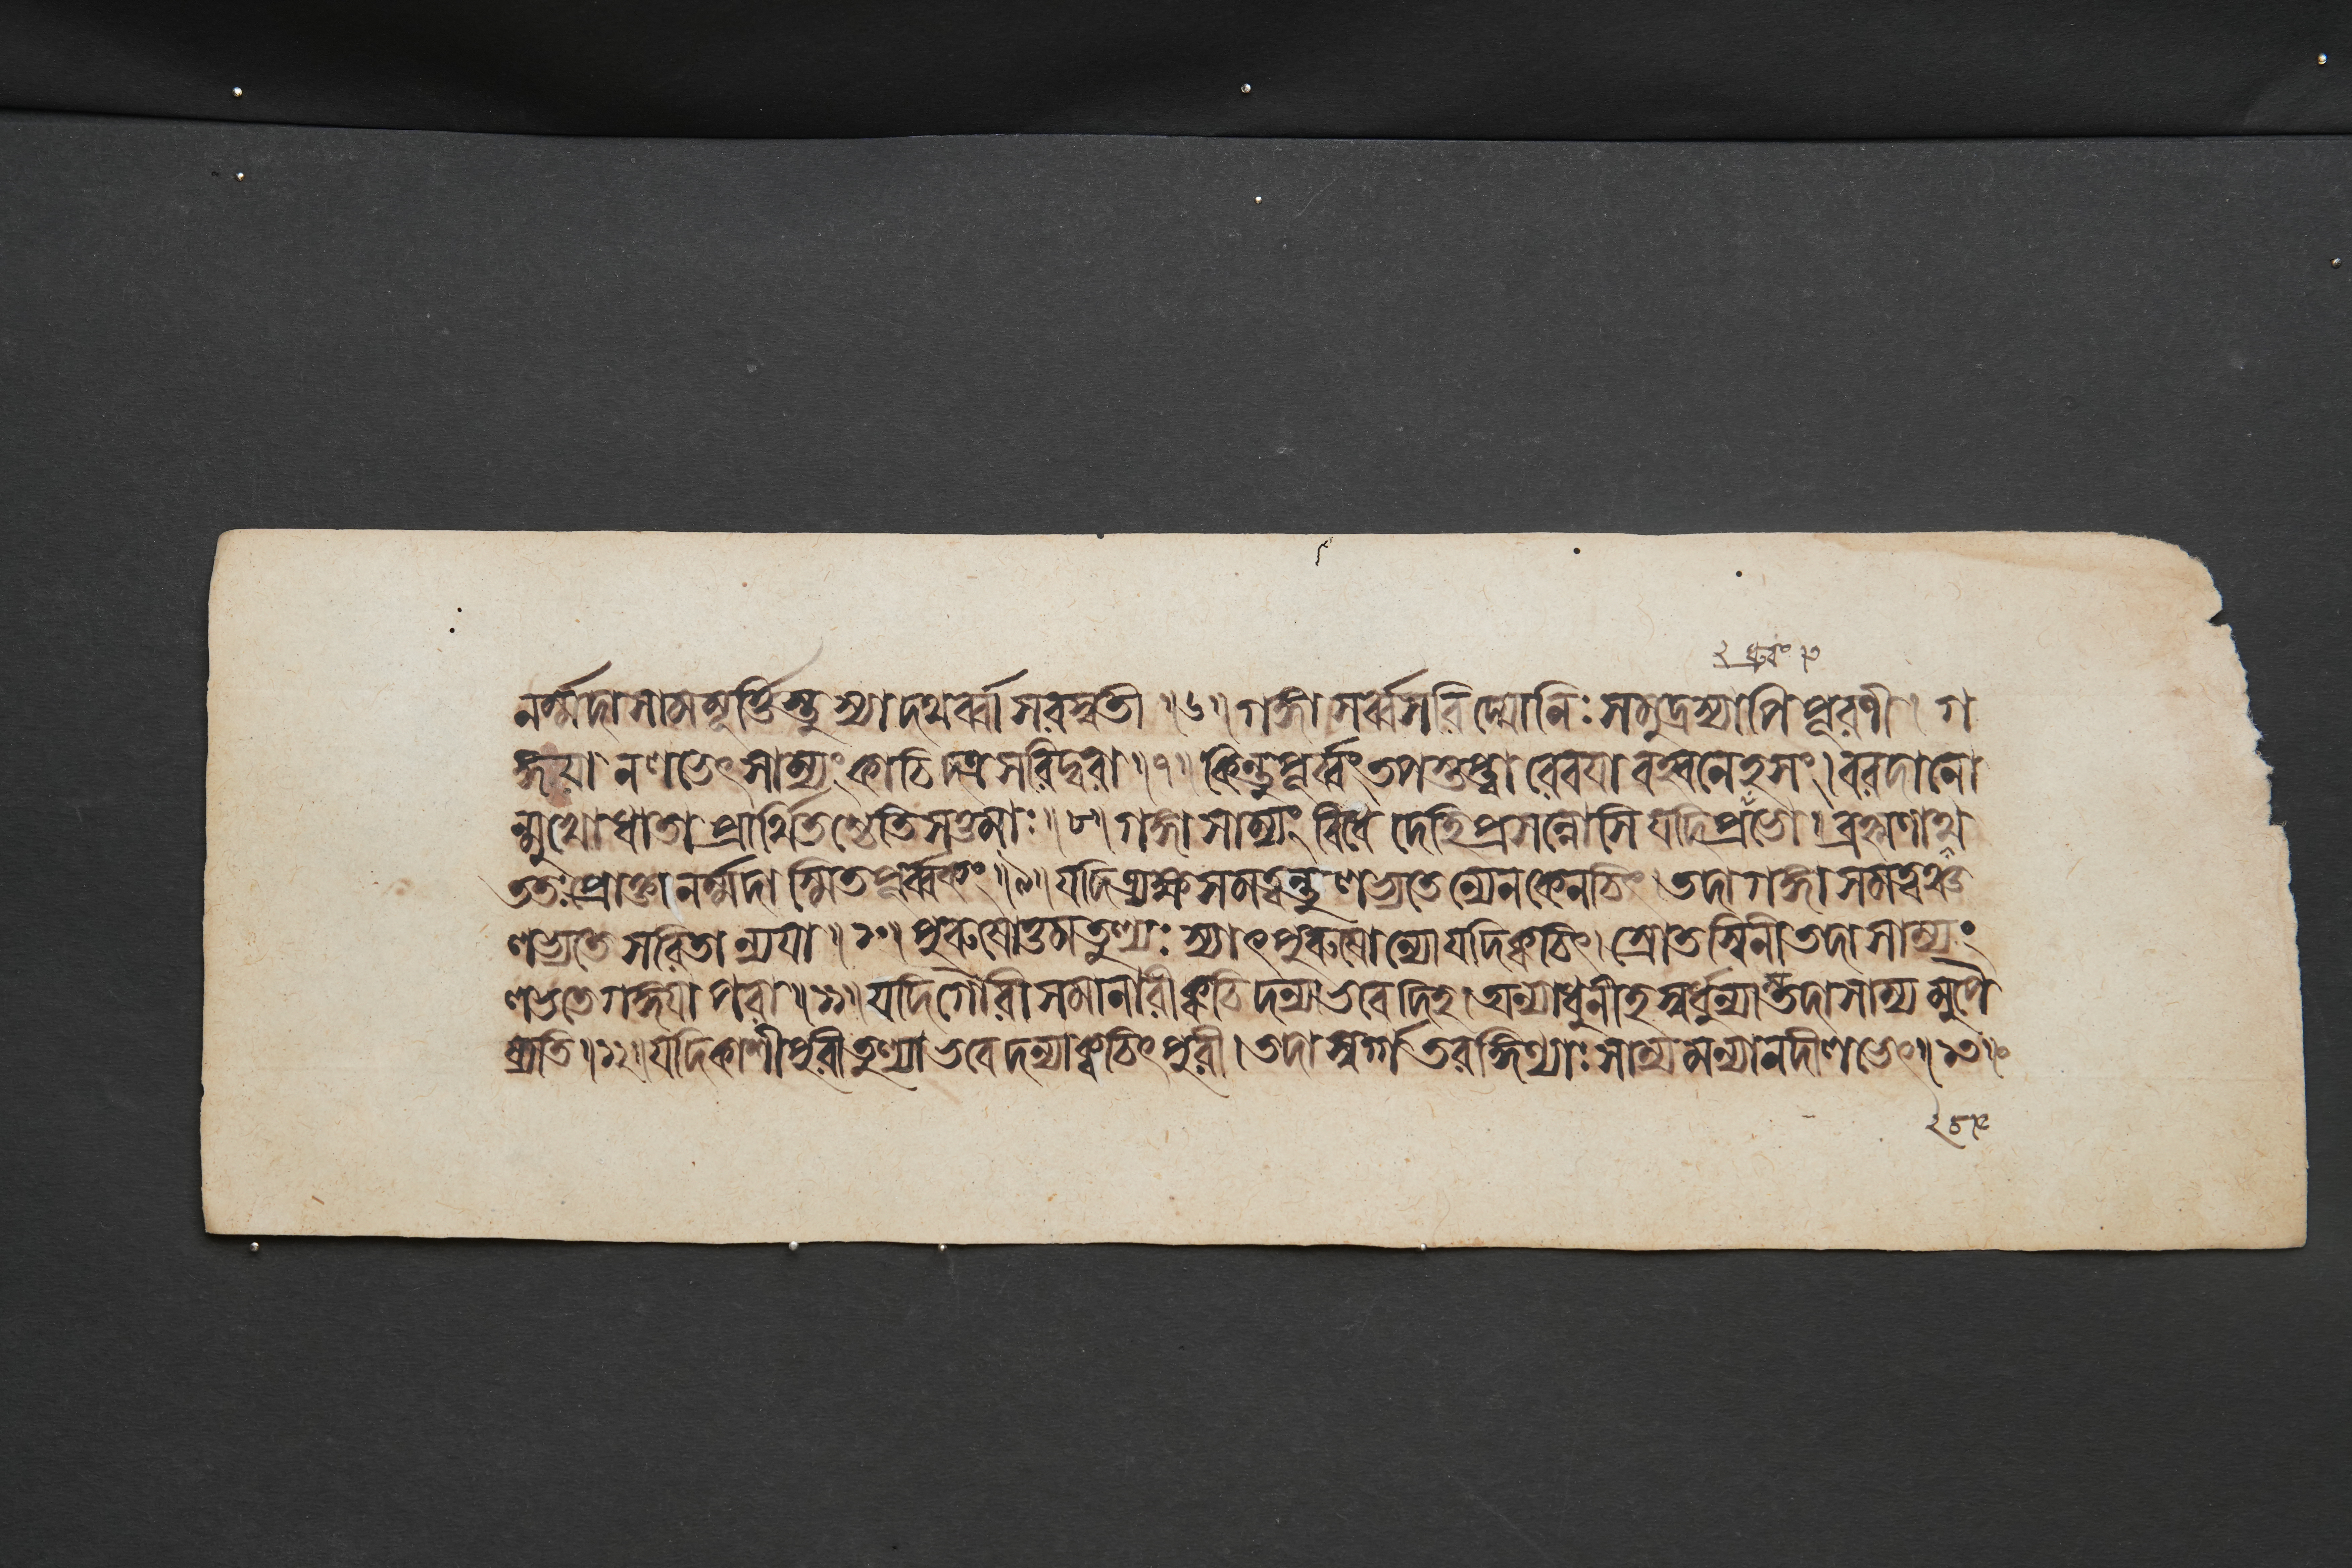 নর্ম্মদা সামমূর্ত্তিস্তু স্যাদথর্ব্বা সরস্বতী ॥৬॥ গঙ্গা সর্ব্বসরিদ্যোনিঃ সমুদ্রস্যাপি পূরণী । গ
ঙ্গয়া ন লভেৎ সাম্যং কাচিদত্র সরিদ্বরা ॥৭॥ কিন্তু পূর্ব্বং তপস্তপ্ত্বা রেবয়া বহ্বনেহসং । বরদানো
ন্মুখো ধাতা প্রার্থিতশ্চেতি সত্তমাঃ ॥৮॥ গঙ্গা সাম্যং বিধে দেহি প্রসন্নোসি যদি প্রভো । ব্রহ্মণাথ
ততঃ প্রোক্তা নর্ম্মদা স্মিতপূর্ব্বকং ॥৯॥ যদি ত্র্যক্ষসমত্বন্তু লভ্যতেন্যেন কেনচিৎ । তদা গঙ্গাসমত্বঞ্চ
লভ্যতে সরিতান্যয়া ॥১০॥ পুরুষোত্তমতুল্যঃ স্যাৎ পুরুষোন্যো যদি ক্বচিৎ । স্রোতস্বিনী তদা সাম্যং
লভতে গঙ্গয়া পরা ॥১১॥ যদি গৌরী সমা নারী ক্বচিদন্যা ভবেদিহ । অন্যা ধুনীহ স্বর্ধুন্যাস্তদা সাম্যমুপৈ
ষ্যতি ॥১২॥ যদি কাশীপুরী তুল্যা ভবেদন্যা ক্বচিৎ পুরী । তদা স্বর্গতরঙ্গিণ্যাঃ সাম্যমন্যা নদী লভেৎ ॥১৩॥